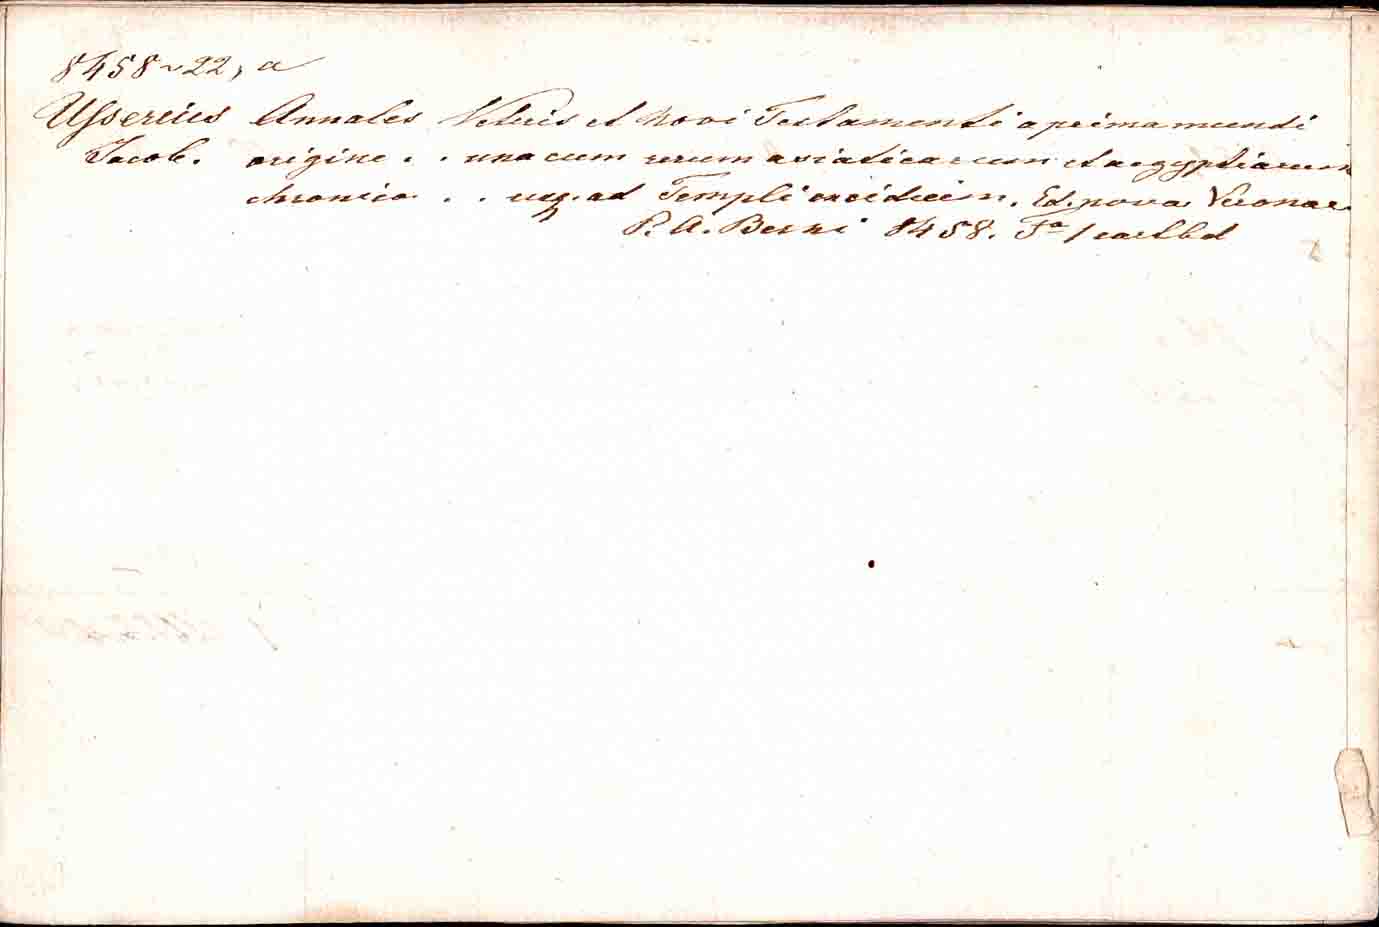 8458~22, a
Usserius Annales Veteris et Novi Testamenti a prima mundi
Jacob. origine . . una cum rerum asiaticarum et aegyptiarum
chronico . . usq. ad Templi excidium. Ed. nova Veronae
P. A. Berni 8458. Fª / cartbd